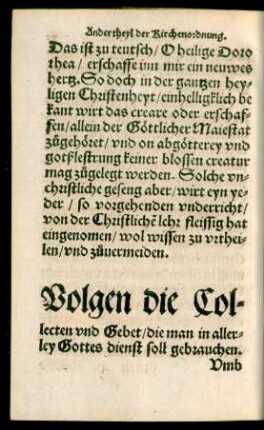 Ander theyl der Kirchenordnung.
Das ist zu teutsch/ O heilige Doro
thea/ erschaffe inn mir ein neuwes
hertz. So doch in der gantzen hey-
ligen Christenheyt/ einhelligklich be
kant wirt das creare oder erschaf-
fen/ allein der Göttlicher Maiestat
zůgehöret/ vnd on abgötterey vnd
gotßlestrung keiner blossen creatur
mag zůgelegt werden. Solche vn-
christliche geseng aber/ wirt eyn ye-
der/ so vorgehenden vnderricht/
von der Christlichē lehr fleissig hat
eingenomen/ wol wissen zu vrthei-
len/ vnd zůuermeiden.
Volgen die Col-
lecten vnd Gebet/ die man in aller-
ley Gottes dienst soll gebrauchen.
Vmb